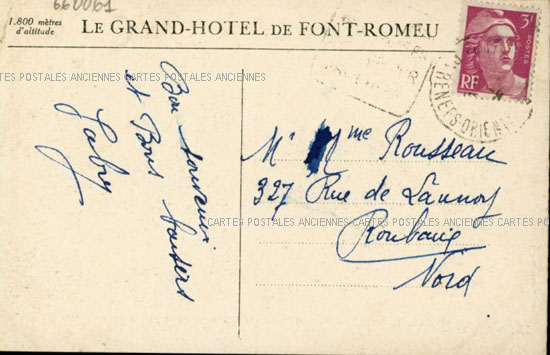 660061
1.800 mètres
d'altitude
LE GRAND-HOTEL DE FONT-ROMEU
3F
POSTES
RF
RENEES-ORIEN
CARTES POSTALES ANCIENNES CARTES POSTALES ANCIENNES CARTES POSTALES ANCIENNES CARTES
Bon souvenir
et Bons baisers
Gaby
Mr Mme Rousseau
327 Rue de Lannoy
Roubaix
Nord
CARTES POSTALES ANCIENNES CARTES POSTALES ANCIENNES CARTES POSTALES